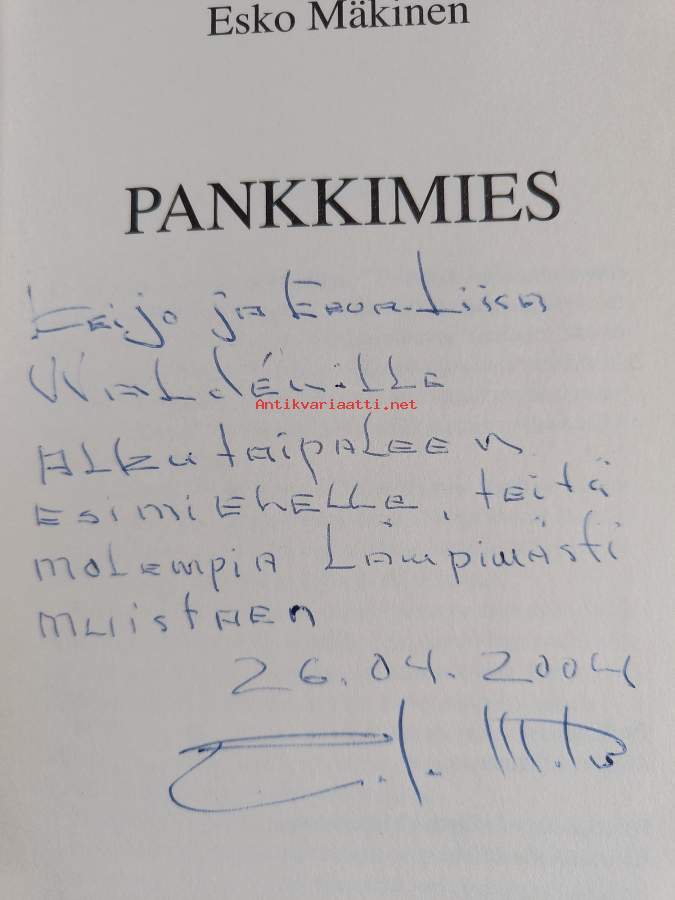 Esko Mäkinen
PANKKIMIES
Keijo ja Eeva-Liisa
Waldénille
Antikvariaatti.net
Alkutaipaleen
esimiehelle, teitä
molempia lämpimästi
muistaen
26.04.2004